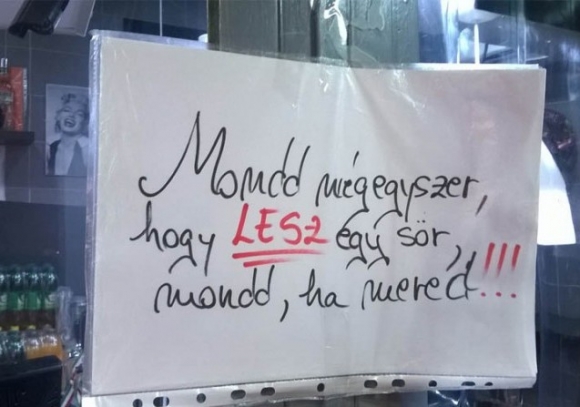 Mondd mégegyszer,
hogy LESZ egy sör,
mondd, ha mered!!!